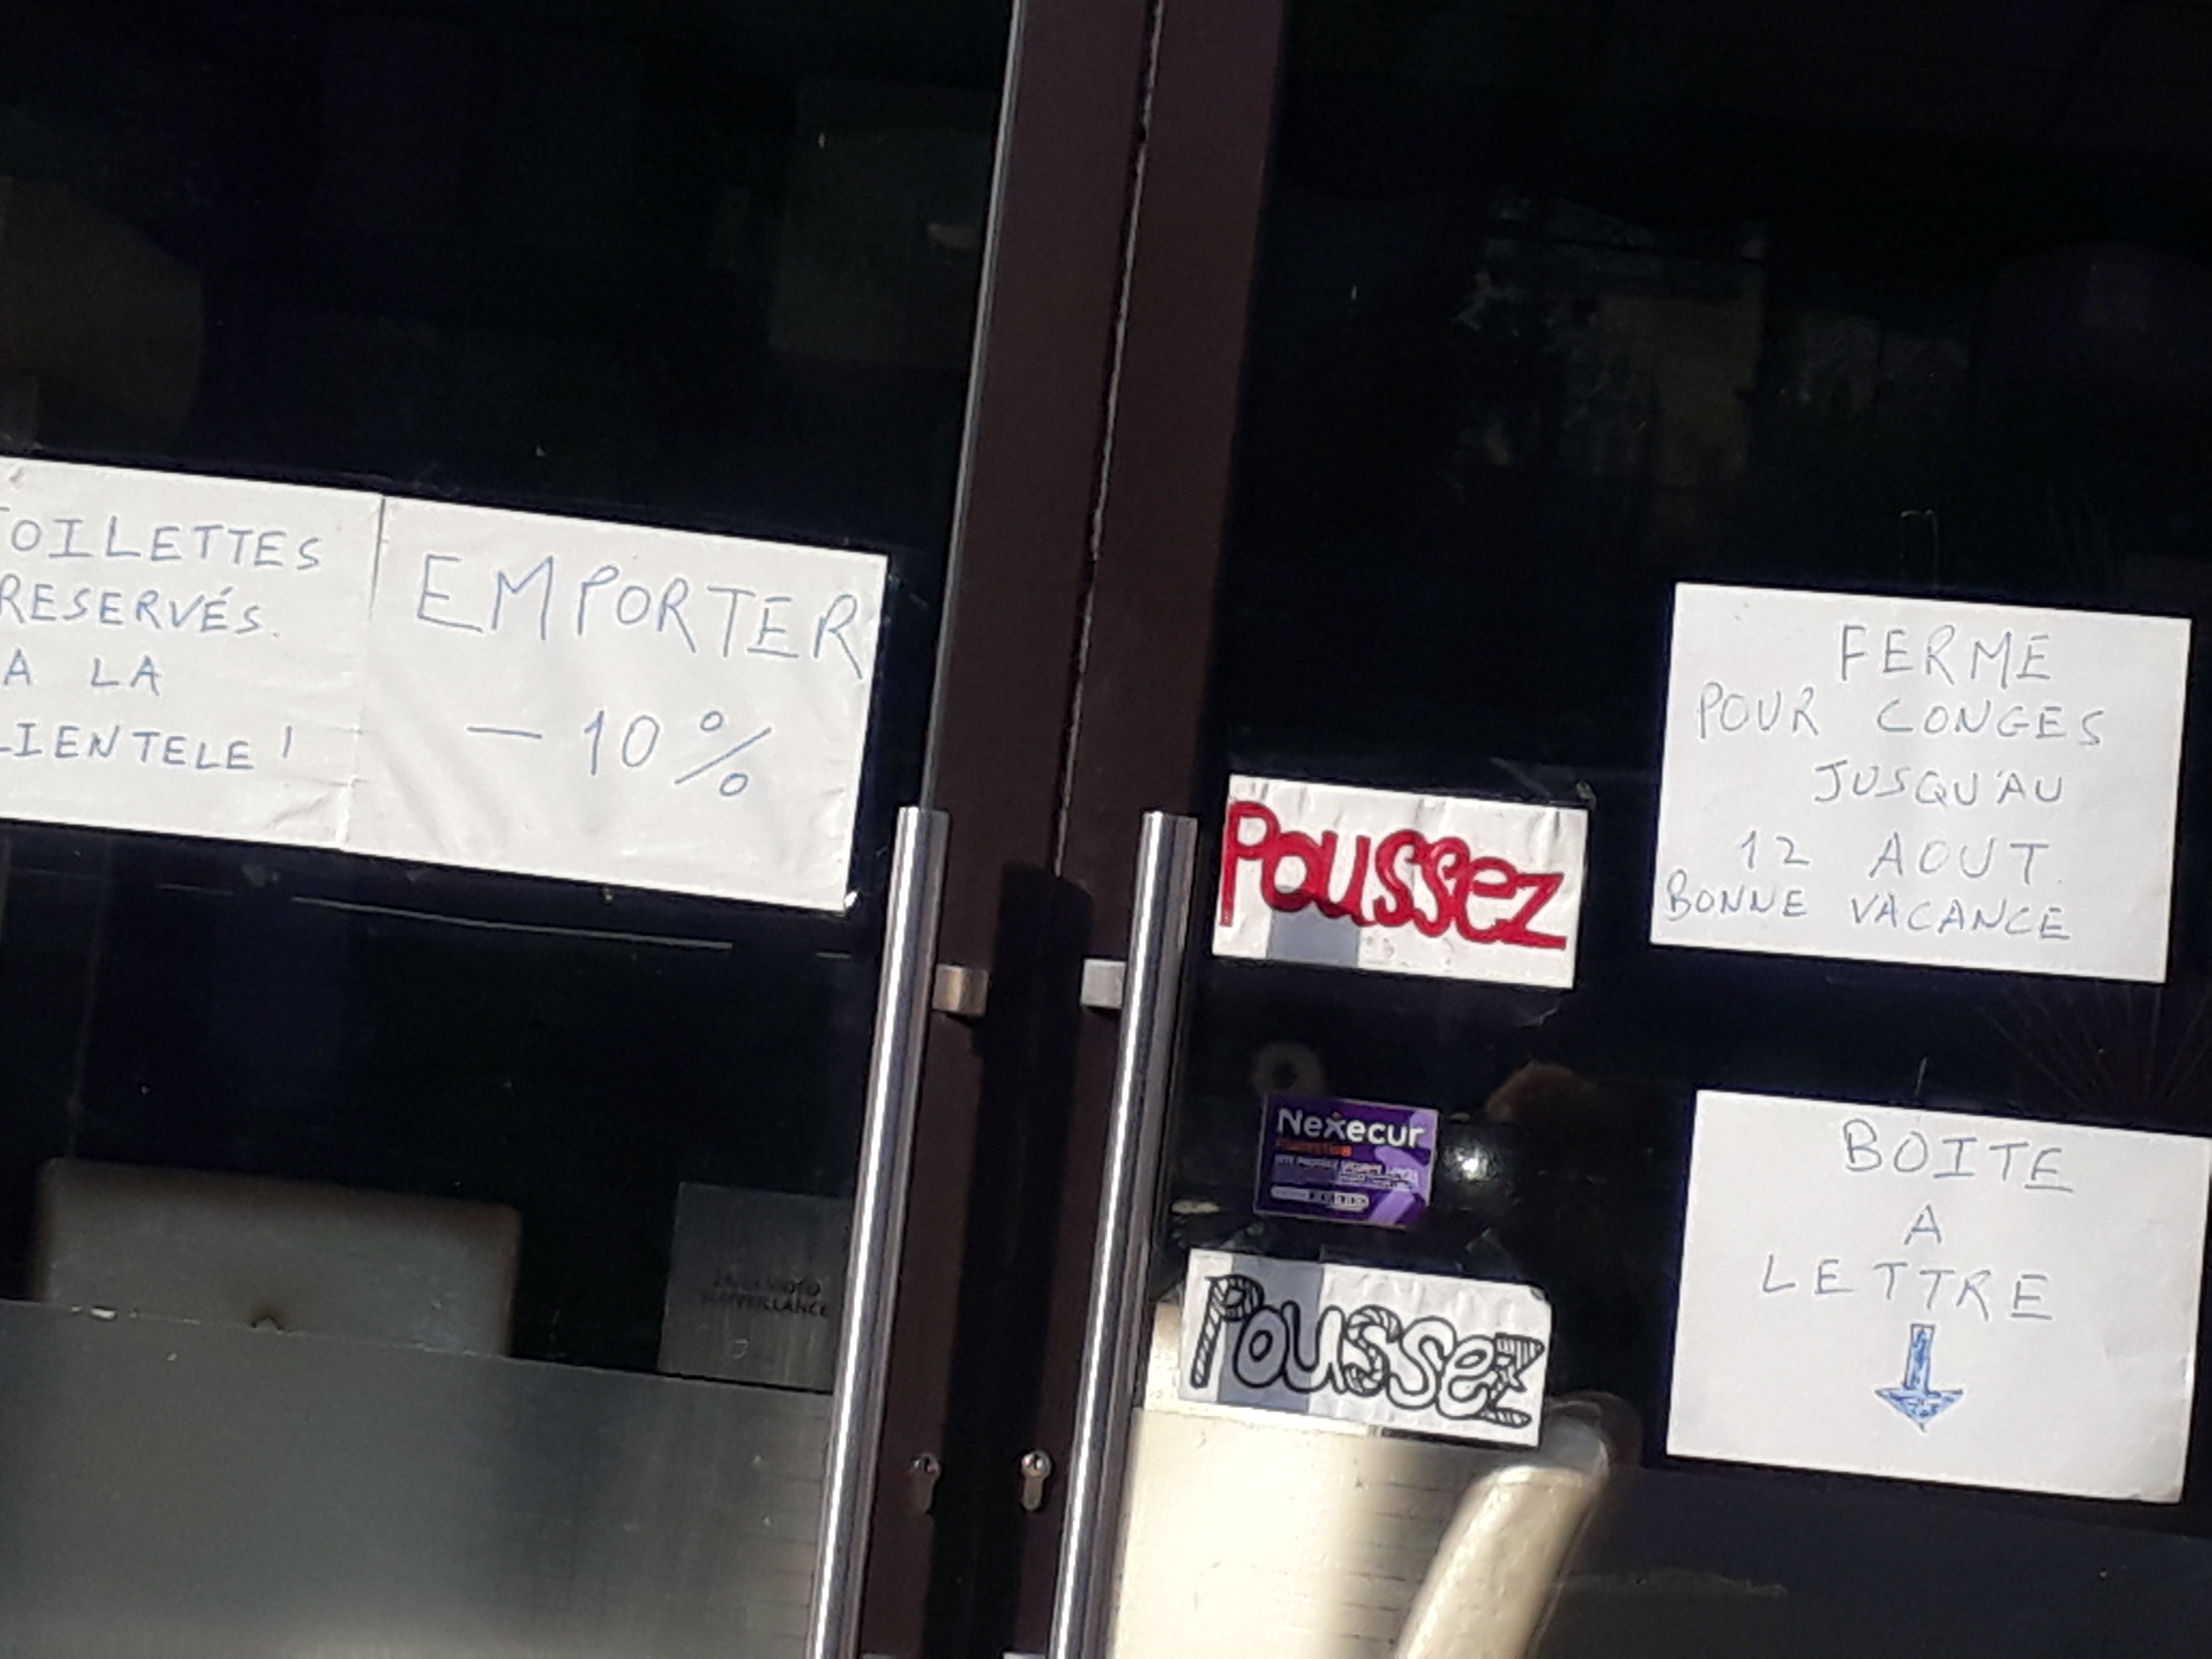 TOILETTES
RESERVÉS.
A LA
LIENTELE !
EMPORTER
- 10 %
FERME
POUR CONGES
JUSQU'AU
12 AOUT.
BONNE VACANCE
Poussez
Nexecur
PROTECTION
Poussez
BOITE
A
LETTRE
VIDEO
SURVEILLANCE